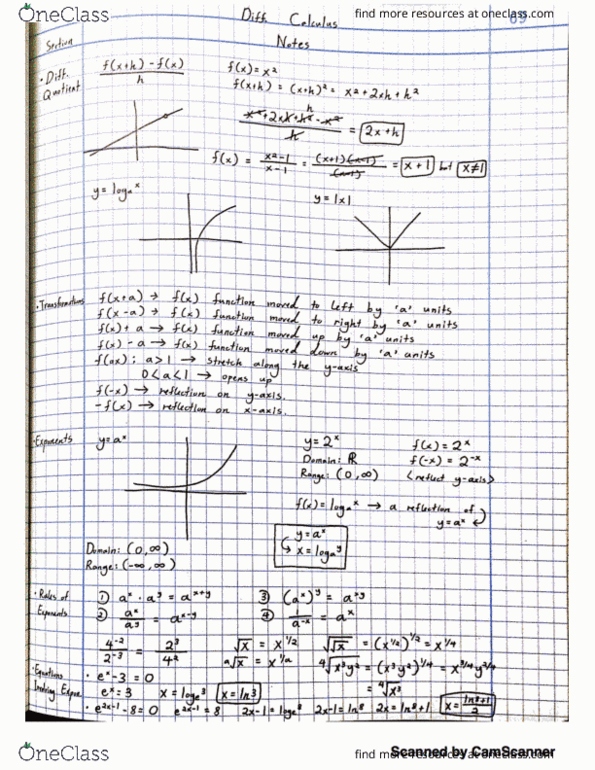 OneClass
find more resources at oneclass.com
Diff. Calculus
Section
Notes
· Diff. Quotient
f(x+h) - f(x) / h
f(x) = x²
f(x+h) = (x+h)² = x² + 2xh + h²
x² + 2xh + h² - x² / h = 2x + h
f(x) = x²-1 / x-1 = (x+1)(x-1) / (x-1) = x + 1 but x≠1
y = logₐx
y = |x|
· Transformations
f(x+a) → f(x) function moved to left by 'a' units
f(x-a) → f(x) function moved to right by 'a' units
f(x) + a → f(x) function moved up by 'a' units
f(x) - a → f(x) function moved down by 'a' units
f(ax): a > 1 → stretch along the y-axis
0 < a < 1 → opens up
f(-x) → reflection on y-axis.
-f(x) → reflection on x-axis.
· Exponents
y = aˣ
y = 2ˣ
Domain: ℝ
Range: (0, ∞)
f(x) = 2ˣ
f(-x) = 2⁻ˣ
<reflect y-axis>
f(x) = logₐx → a reflection of
y = aˣ
y = aˣ
↳ x = logₐy
Domain: (0, ∞)
Range: (-∞, ∞)
· Rules of Exponents
① aˣ · aʸ = aˣ⁺ʸ
③ (aˣ)ʸ = aˣʸ
② aˣ / aʸ = aˣ⁻ʸ
④ 1 / a⁻ˣ = aˣ
4⁻² / 2⁻³ = 2³ / 4²
√x = x^1/2
ᵃ√x = x^1/a
√√x = (x^1/2)^1/2 = x^1/4
⁴√x³y² = (x³y²)^1/4 = x^3/4 y^2/4
= ⁴√x³
· Equations Involving Expone
· eˣ - 3 = 0
eˣ = 3 x = logₑ3 x = ln3
· e²ˣ⁻¹ - 8 = 0 e²ˣ⁻¹ = 8 2x-1 = logₑ8 2x-1 = ln8 2x = ln8+1 x = ln8+1 / 2
Scanned by CamScanner
OneClass
find more resources at oneclass.com